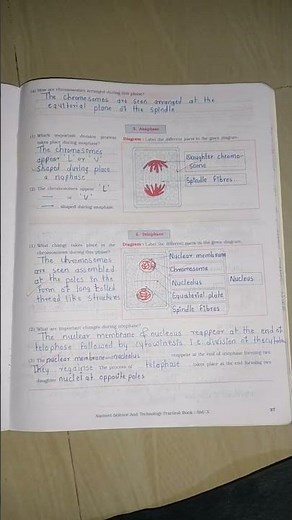 (4) How are chromosomes arranged during this phase?
The chromosomes are seen arranged at the
equtorial plane of the spindle
D. Anaphase
(1) Which important
takes place during anaphase?
The chromosomes
appear 'L' or 'V'
shaped during
anaphase
(2) The chromosomes appear 'L'
or 'V'
shaped during anaphase.
Diagram : Label the different parts in the given diagram.
Daughter chromo-
some
Spindle fibres
E. Telophase
(1) What change takes place in the
chromosomes during this phase?
The chromosomes
are seen assembled
at the poles in the
form of long
thread like structures
Diagram : Label the different parts in the given diagram.
Nuclear membrane
Chromosome
Nucleolus
Nucleus
Equatorial plate
Spindle fibres
(2) What are important changes during telophase?
The nuclear membrane & nucleous reappear at the end of
telophase followed by cytokinesis i.e division of the
(3) The nuclear membrane nucleolus reappear at the end of telophase forming two
They The process of telophase takes place at the end forming two
daughter nuclei at opposite poles
Natural Science And Technology Practical Book : Std. X
87